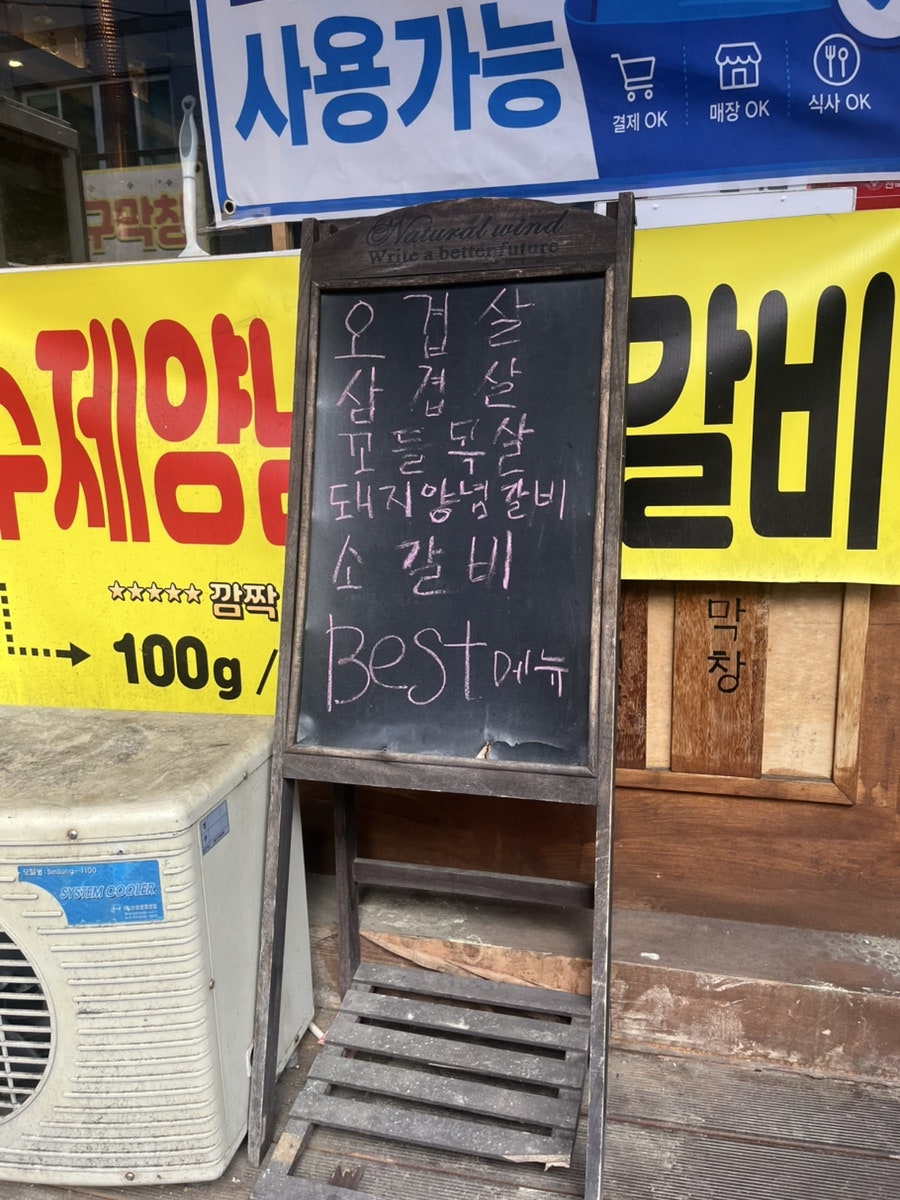 사용가능
결제 OK
매장 OK
식사 OK
구막창
Natural wind
Write a better future
수제양념
갈비
오겹살
삼겹살
꼬들목살
돼지양념갈비
소갈비
Best 메뉴
★★★★★ 깜짝
100g /
막창
모델명: SinSung-1100
SYSTEM COOLER